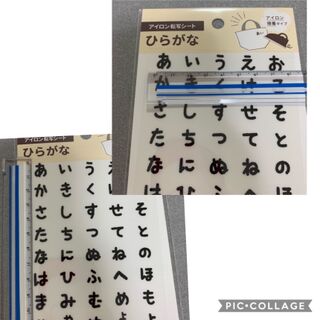 アイロン転写シート
ひらがな
アイロン
接着タイプ
あいうえお
かきくけこ
さしすせそ
たちつてと
なにぬねの
はひふへほ
アイロン転写シート
ひらがな
あいうえ
かきくけ
さしすせそ
たちつてと
なにぬねの
はひふへほ
まみむめも
PIC•COLLAGE